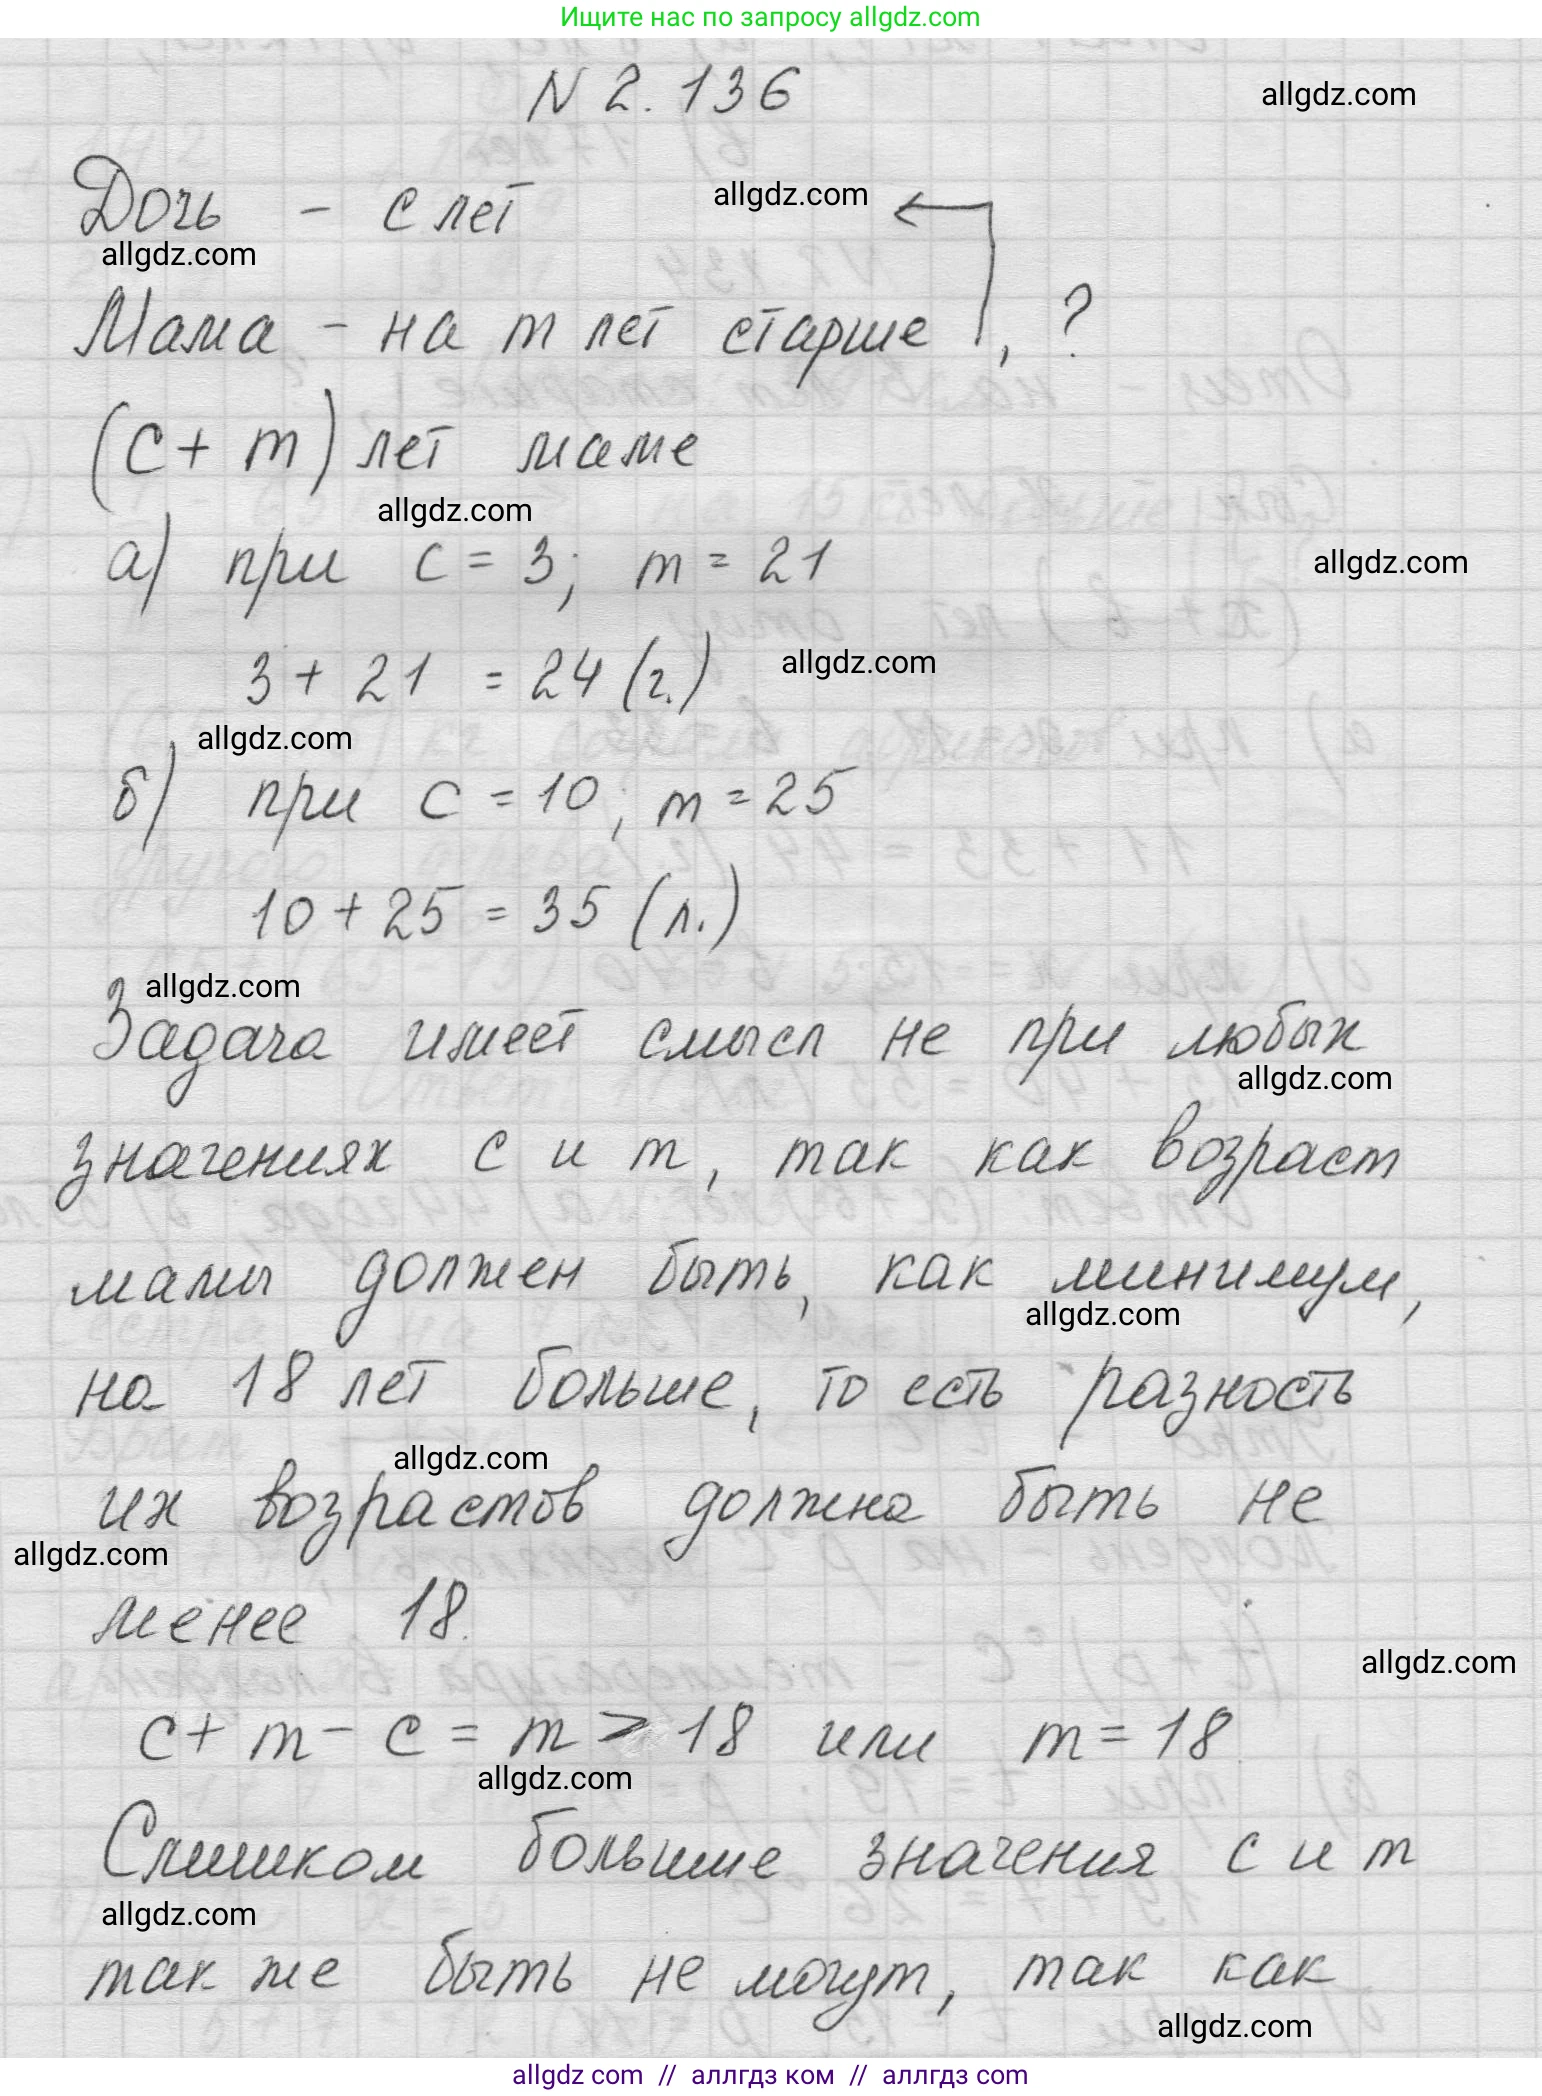 Ищите нас по запросу allgdz.com
N 2.136
allgdz.com
Дочь - с лет
allgdz.com
allgdz.com
Мама - на m лет старше, ?
(c + m) лет маме
allgdz.com
а) при c = 3; m = 21
allgdz.com
3 + 21 = 24 (г.)
allgdz.com
allgdz.com
б) при c = 10; m = 25
10 + 25 = 35 (л.)
allgdz.com
Задача имеет смысл не при любых
allgdz.com
значениях c и m, так как возраст
мамы должен быть, как минимум,
allgdz.com
на 18 лет больше, то есть разность
allgdz.com
их возрастов должна быть не
allgdz.com
менее 18.
allgdz.com
c + m - c = m > 18 или m = 18.
allgdz.com
Слишком большие значения c и m
allgdz.com
так же быть не могут, так как
allgdz.com
allgdz.com // аллгдз ком // аллгдз com